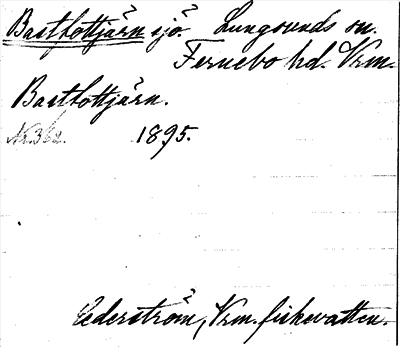 Bastlottjärn sjö. Lungsunds sn.
Fernebo hd. Vrm.
Bastlottjärn.
Nr. 362. 1895.
Cederström, Vrm. fiskevatten.